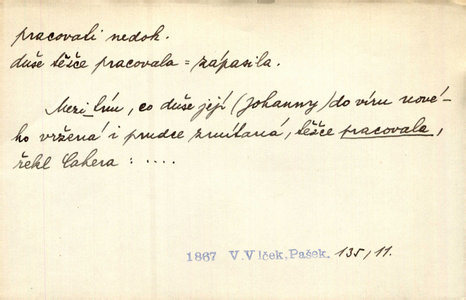 pracovati nedok.
duše těšce pracovala = zápasila.
Mezi tím, co duše její (Johanny) do víru nové-
ho vržená i prudce zmítaná, těšce pracovala,
řekl Cahera: ....
1867 V.Vlček.Pašek. 135/11.